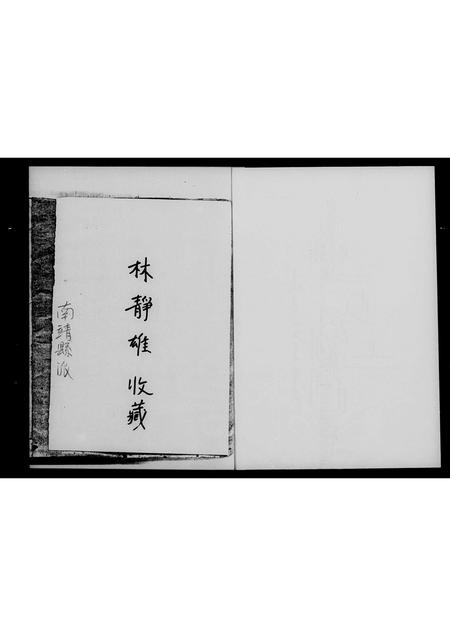 林靜雄 收藏
南靖縣派